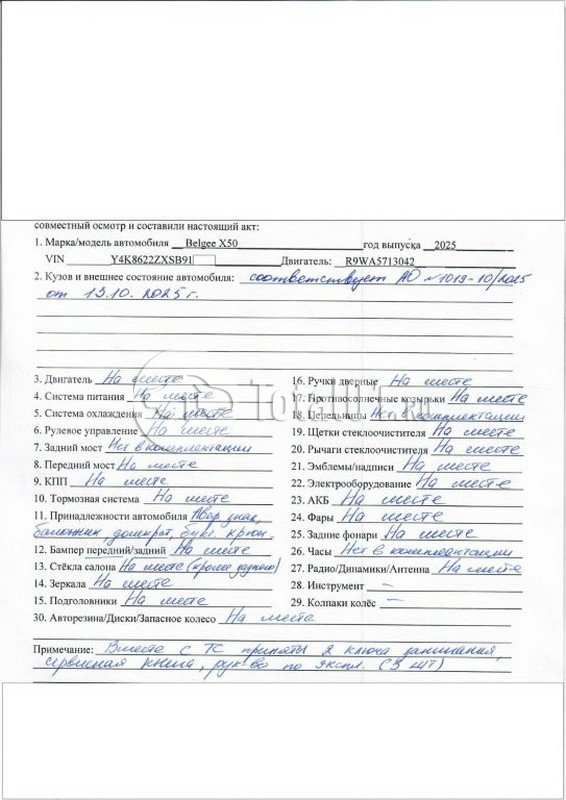 совместный осмотр и составили настоящий акт:
1. Марка/модель автомобиля Belgee X50 год выпуска 2025
VIN Y4K8622ZXSB91 Двигатель: R9WA5713042
2. Кузов и внешнее состояние автомобиля: соответствует АО №1019-10/2025
от 13.10.2025 г.
3. Двигатель На месте
4. Система питания На месте
5. Система охлаждения На месте
6. Рулевое управление На месте
7. Задний мост Нет в комплектации
8. Передний мост На месте
9. КПП На месте
10. Тормозная система На месте
11. Принадлежности автомобиля Авар. знак,
балонник, домкрат, букс. крюк
12. Бампер передний/задний На месте
13. Стёкла салона На месте (кроме заднего)
14. Зеркала На месте
15. Подголовники На месте
16. Ручки дверные На месте
17. Противосолнечные козырьки На месте
18. Пепельницы Нет в комплектации
19. Щетки стеклоочистителя На месте
20. Рычаги стеклоочистителя На месте
21. Эмблемы/надписи На месте
22. Электрооборудование На месте
23. АКБ На месте
24. Фары На месте
25. Задние фонари На месте
26. Часы Нет в комплектации
27. Радио/Динамики/Антенна На месте
28. Инструмент –
29. Колпаки колёс –
30. Авторезина/Диски/Запасное колесо На месте
Примечание: Вместе с ТС приняты 2 ключа зажигания,
сервисная книга, рук-во по экспл. (3 шт)